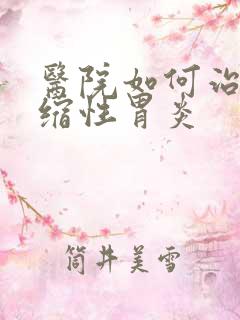 醫院如何治
缩性胃炎
筒井美雪